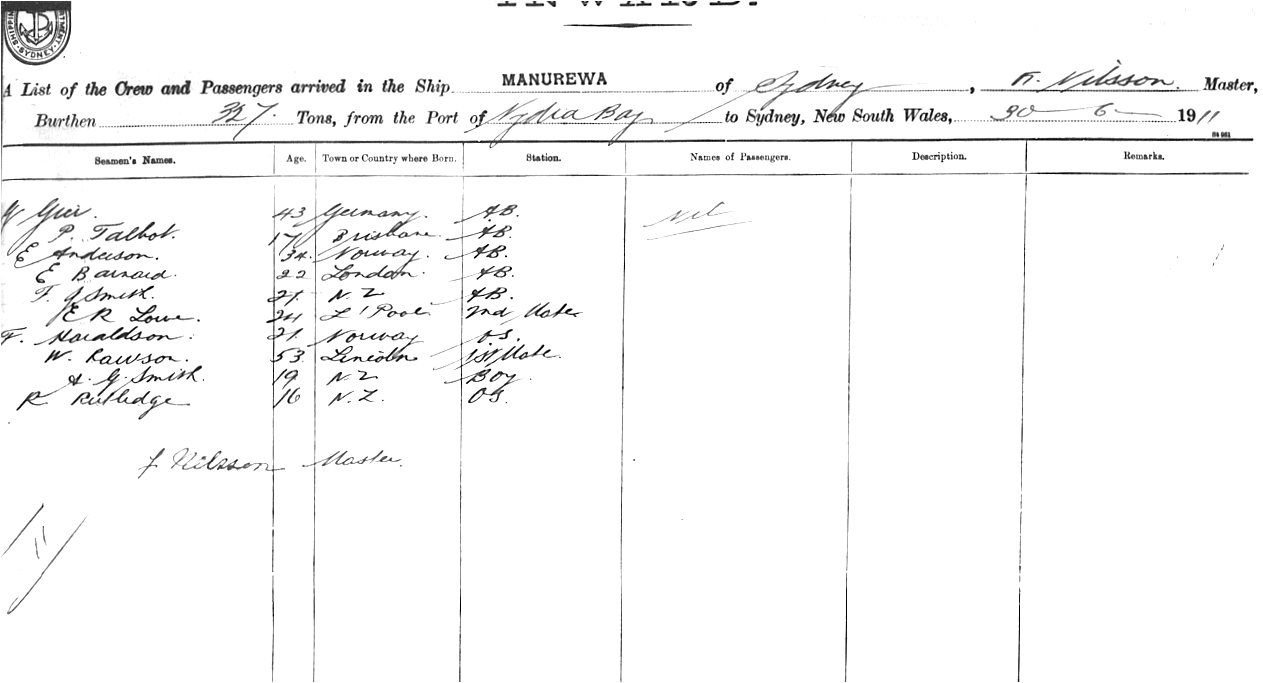 INWARD.
SHIPPING SYDNEY
A List of the Crew and Passengers arrived in the Ship MANUREWA of Sydney, Nilsson Master,
Burthen 327 Tons, from the Port of Nydia Bay to Sydney, New South Wales, 30 6 1911
Seamen's Names. Age. Town or Country where Born. Station. Names of Passengers. Description. Remarks.
43 Germany. AB. Nil
P. Talbot. 17 Brisbane. AB.
E Anderson. 34. Norway. AB.
E Barnard. 22 London. AB
F. J Smith. 21. N.Z AB.
E R Lowe. 24 L'Pool. 2nd Mate
F. Haraldson. 21. Norway O.S.
W. Rawson. 53. Lincoln 1st Mate.
A. G. Smith. 19 N.Z Boy.
R Rutledge 16 N.Z. OS.
Nilsson Master.